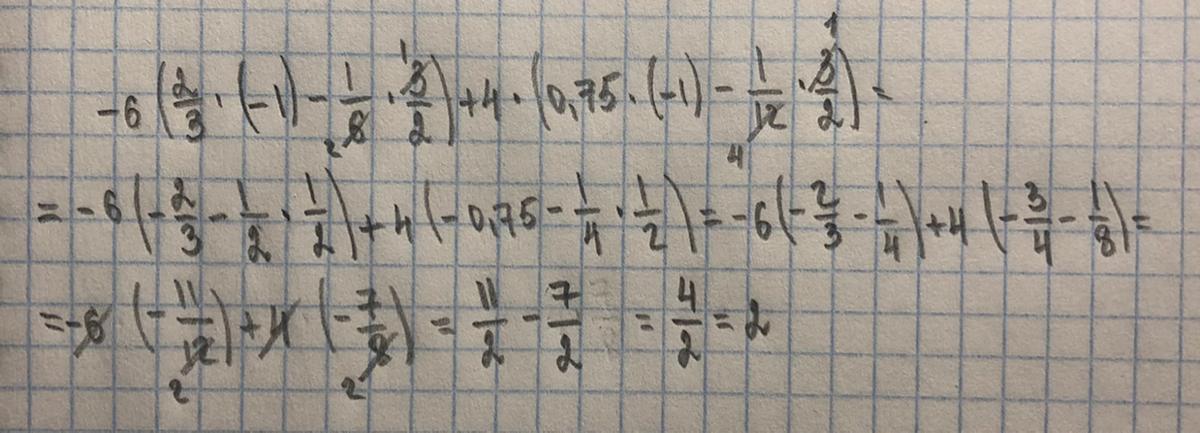 -6 (2/3 · (-1) - 1/8 · 3/2) + 4 · (0,75 · (-1) - 1/12 · 3/2) =
= -6 (-2/3 - 1/2 · 1/2) + 4 (-0,75 - 1/4 · 1/2) = -6 (-2/3 - 1/4) + 4 (-3/4 - 1/8) =
= -6 (-11/12) + 4 (-7/8) = 11/2 - 7/2 = 4/2 = 2